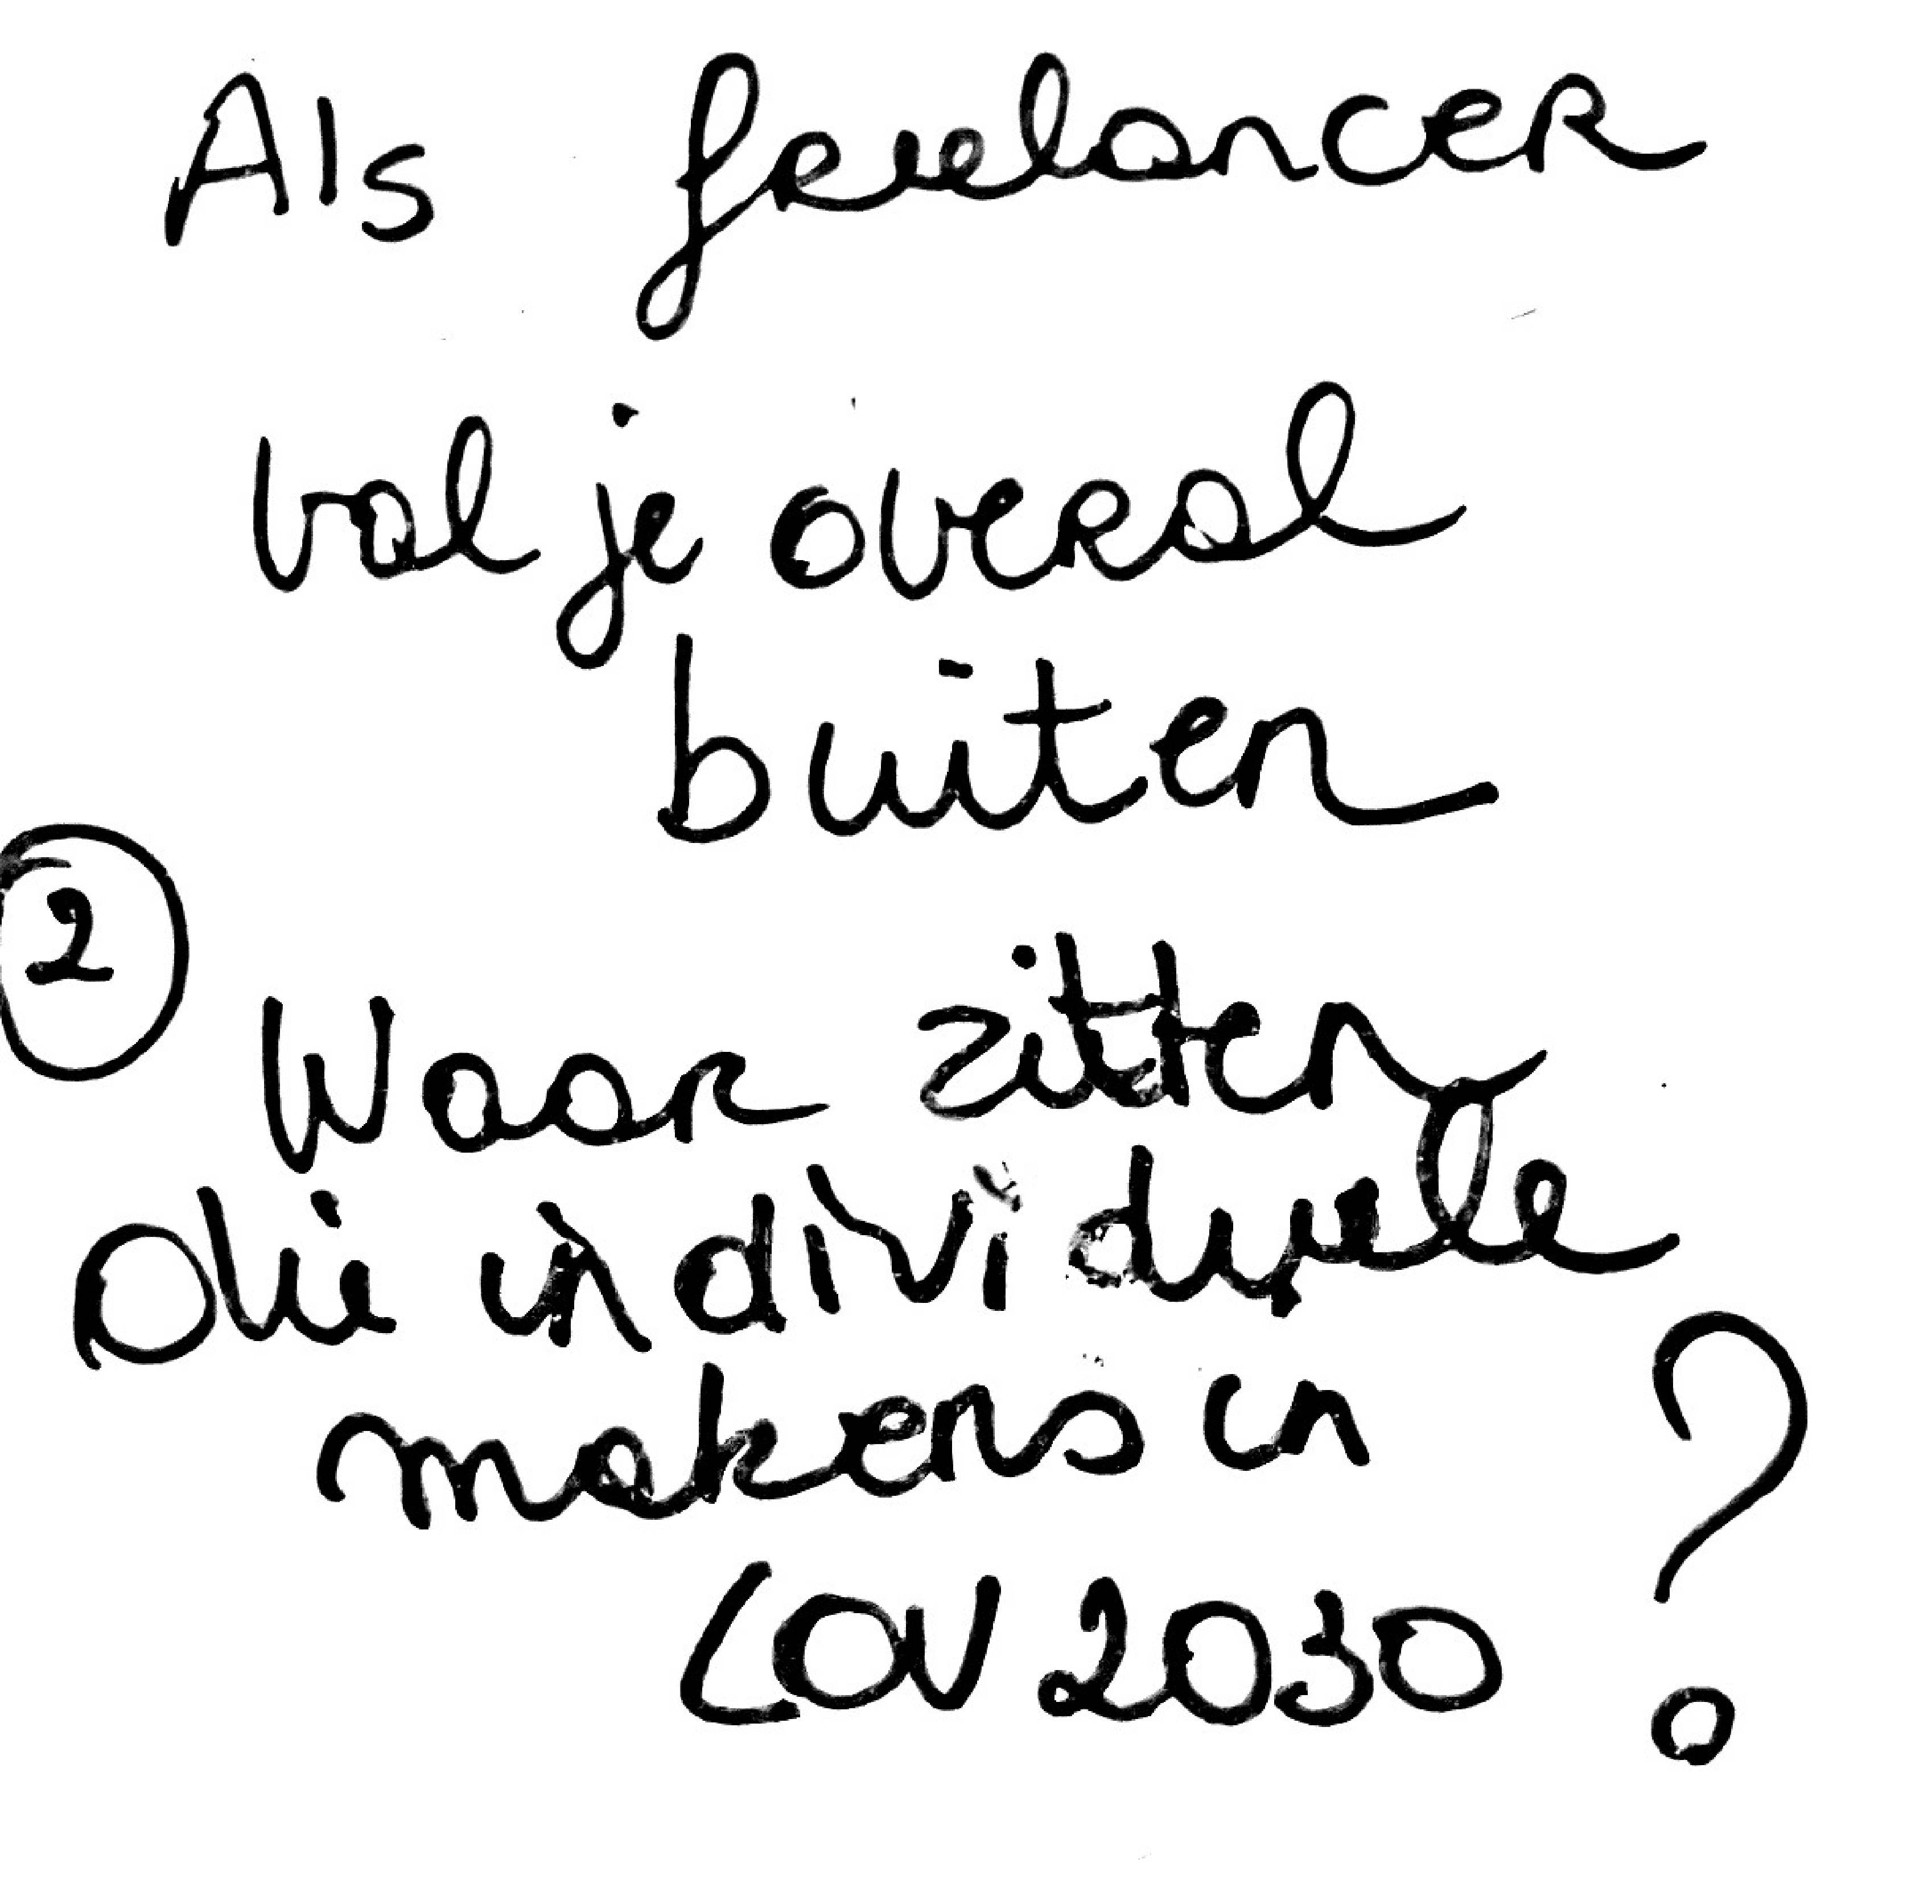 Als freelancer
val je overal
buiten
2
Waar zitten
die individuele
makers in
LOV 2030 ?